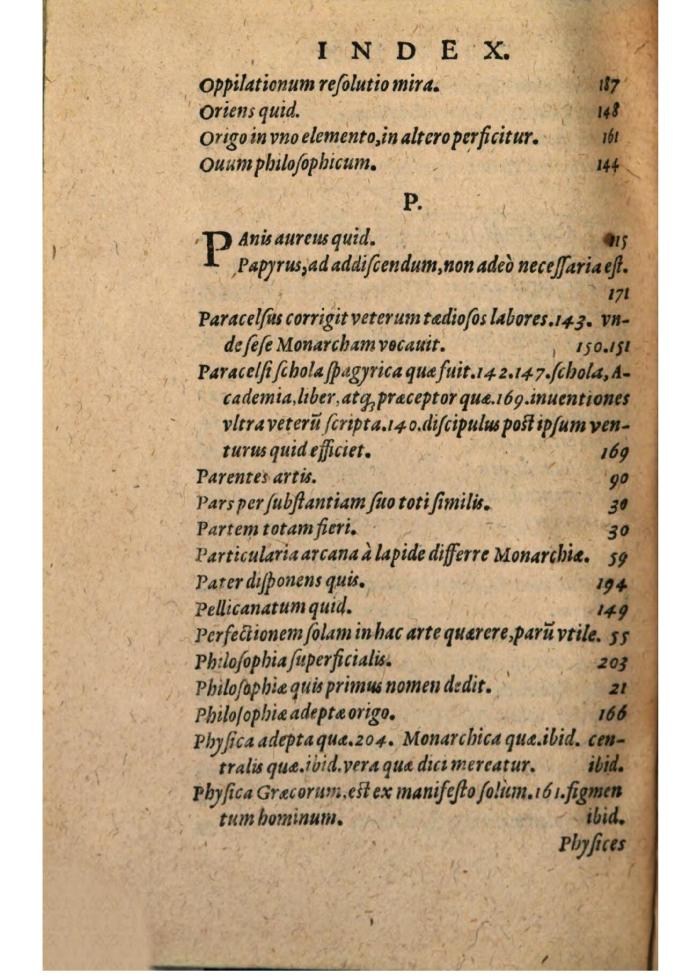 INDEX.
Oppilationum reſolutio mira. 187
Oriens quid. 148
Origo in vno elemento, in altero perficitur. 161
Ouum philoſophicum. 144
P.
PAnis aureus quid. 115
Papyrus, ad addiſcendum, non adeò neceſſaria eſt.
171
Paracelſus corrigit veterum tædioſos labores. 143. vn-
de ſeſe Monarcham vocauit. 150.151
Paracelſi ſchola ſpagyrica quæ fuit. 142.147. ſchola, A-
cademia, liber, atq; præceptor quæ. 169. inuentiones
vltra veterũ ſcripta. 140. diſcipulus poſt ipſum ven-
turus quid efficiet. 169
Parentes artis. 90
Pars per ſubſtantiam ſuo toti ſimilis. 30
Partem totam fieri. 30
Particularia arcana à lapide differre Monarchiæ. 59
Pater diſponens quis. 194
Pellicanatum quid. 149
Perfectionem ſolam in hac arte quærere, parũ vtile. 55
Philoſophia ſuperficialis. 203
Philoſophiæ quis primus nomen dedit. 21
Philoſophiæ adeptæ origo. 166
Phyſica adepta quæ. 204. Monarchica quæ. ibid. cen-
tralis quæ. ibid. vera quæ dici mereatur. ibid.
Phyſica Græcorum, eſt ex manifeſto ſolùm. 161. figmen
tum hominum. ibid.
Phyſices